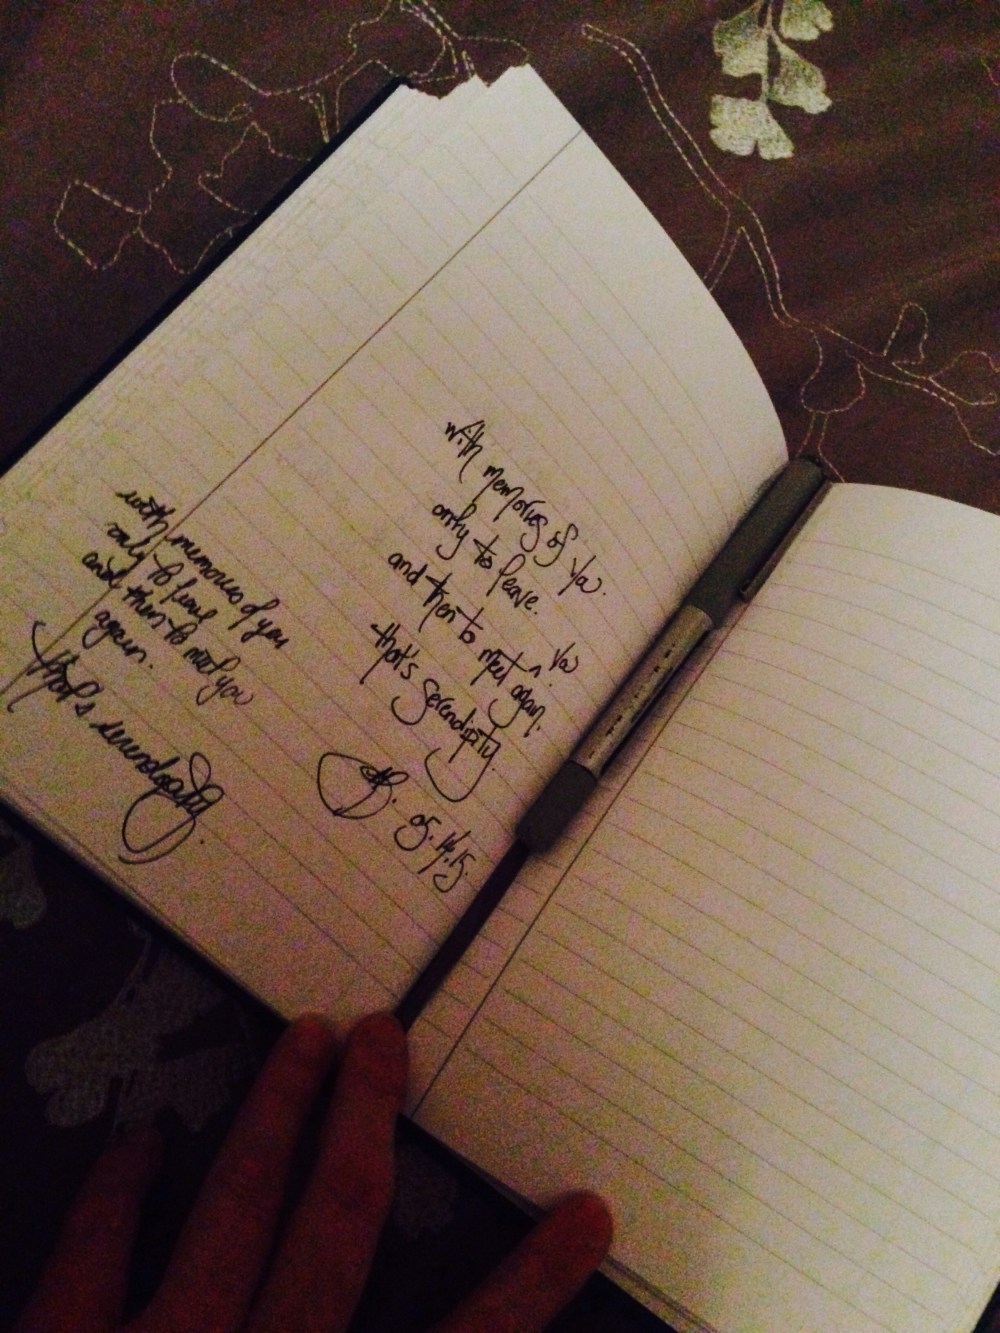 with memories of you
only to leave
and then to meet you
again.
that's serendipity.
with memories of ya.
only to leave.
and then to meet ^ ya again.
that's serendipity.
05.14.15.